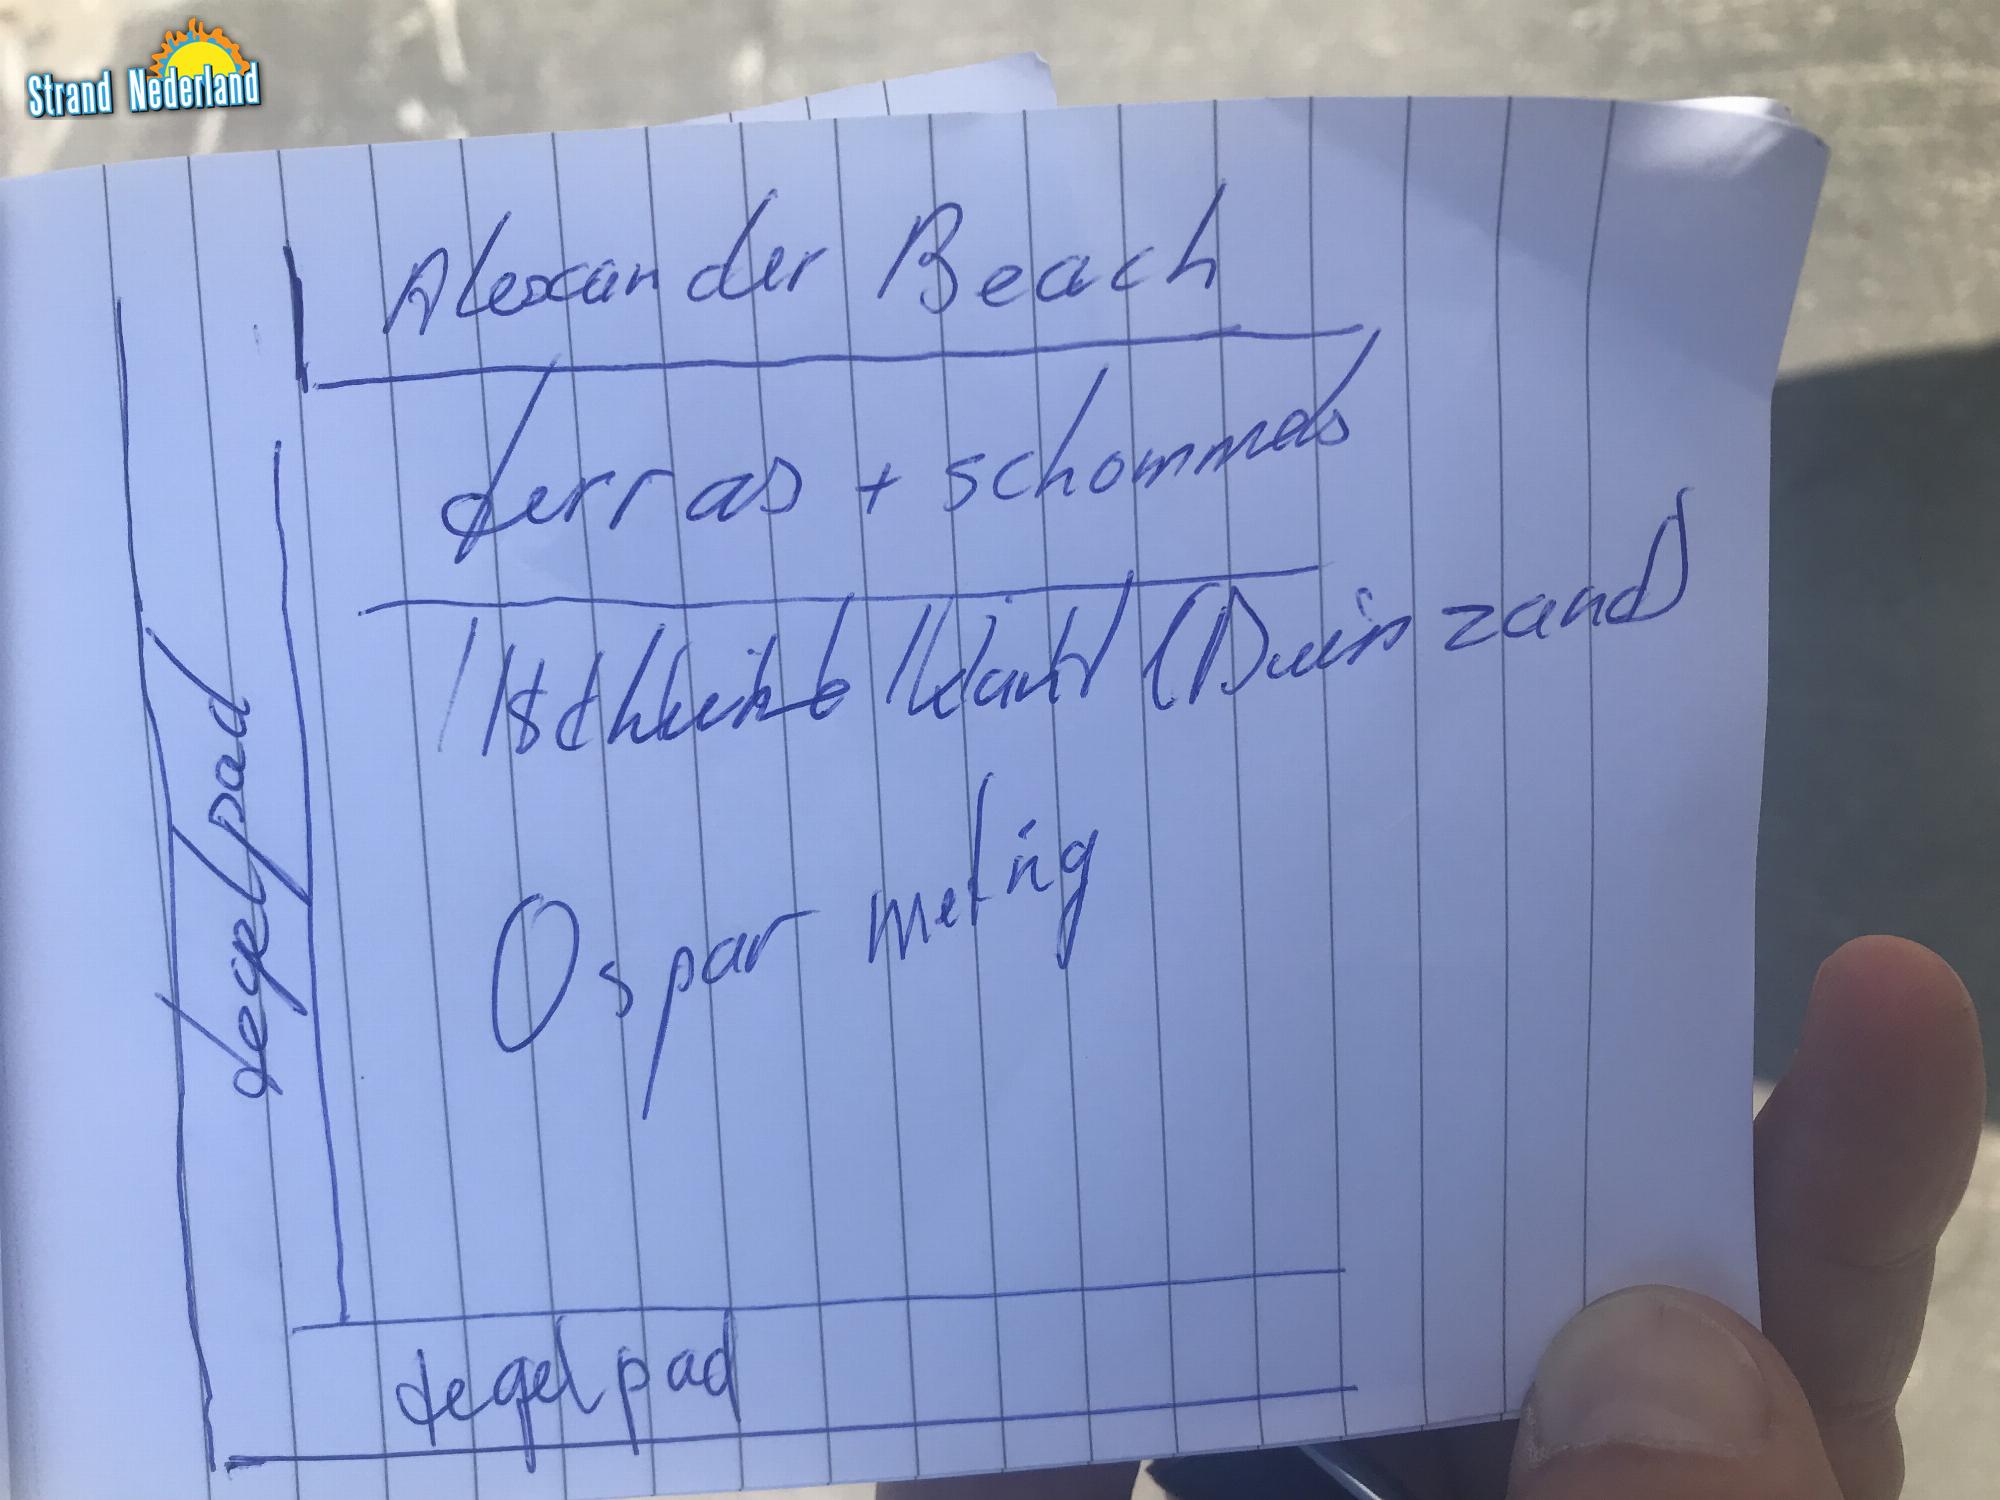 Strand Nederland
Alexander Beach
terras + schommels
(Duinzand)
Ospar meting
tegelpad
tegelpad